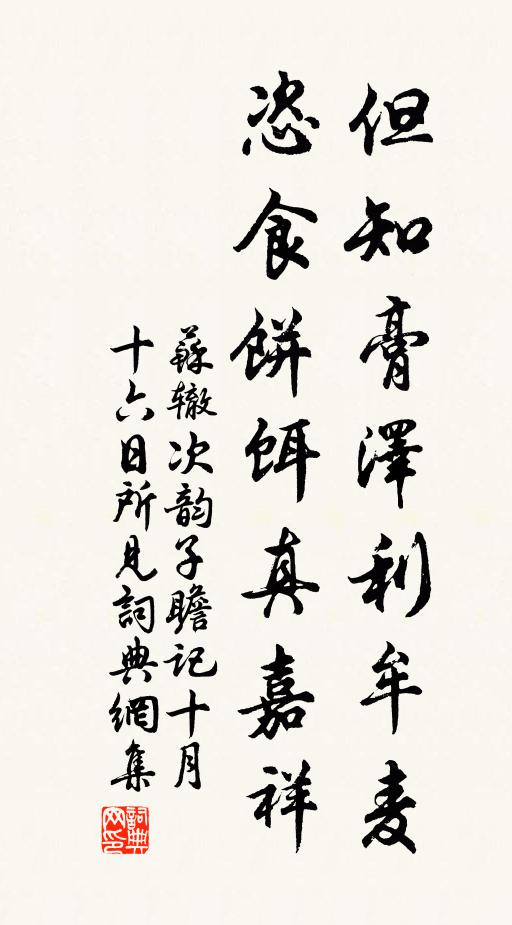 但知膏澤利牟麦
恣食餅餌真嘉祥
蘇辙次韵子瞻记十月
十六日所见詞典網集
詞典网印